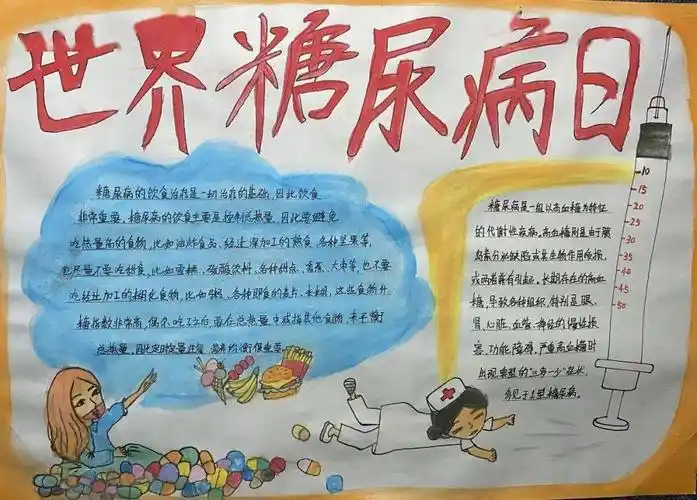 世界糖尿病日
糖尿病的饮食治疗是一切治疗的基础，因此饮食
非常重要，糖尿病的饮食主要是控制总热量，因此要避免
吃热量高的食物，比如油炸食品、经过深加工的熟食、各种坚果等，
也尽量不要吃甜食，比如雪糕、碳酸饮料、各种甜点、香蕉、大枣等，也不要
吃经过加工的糊化食物，比如粥、各种即食的麦片、米糊，这些食物升
糖指数非常高，偶尔吃了之后要在总热量中减掉其他食物，来平衡
总热量，因此定时定量进餐 营养均衡很重要。
糖尿病是一组以高血糖为特征
的代谢性疾病。高血糖则是由于胰
岛素分泌缺陷或其生物作用受损，
或两者兼有引起。长期存在的高血
糖，导致各种组织，特别是眼、
肾、心脏、血管、神经的慢性损
害、功能障碍。严重高血糖时
出现典型的“三多一少”症状，
多见于1型糖尿病。
10
15
20
25
30
35
40
45
50